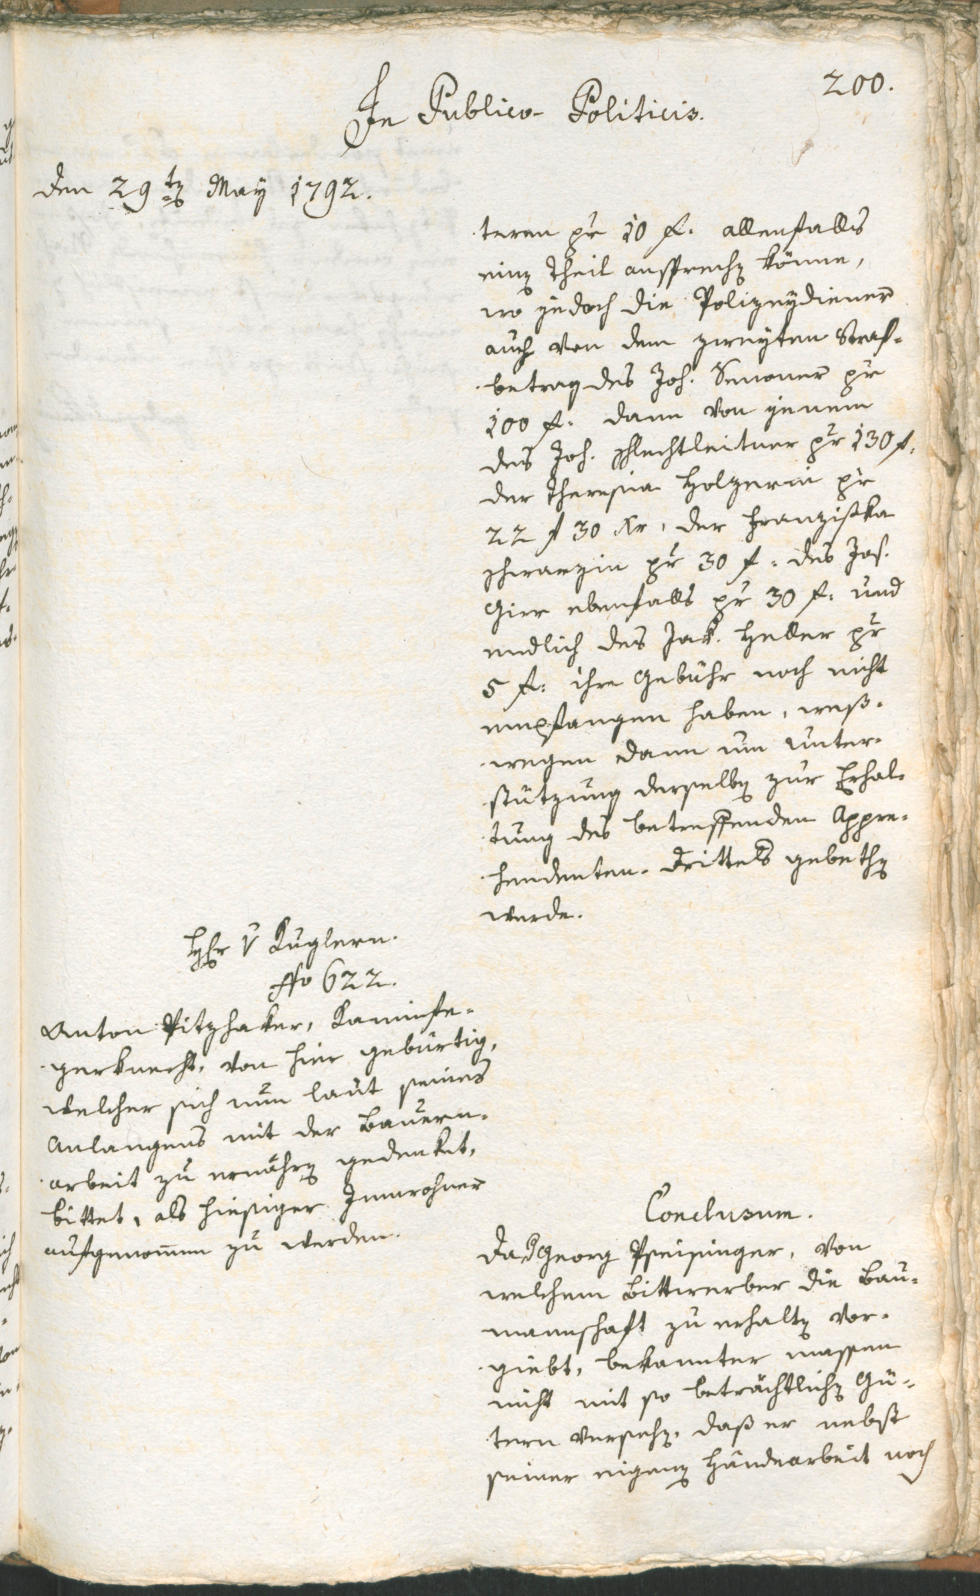 200.
In Publico-Politicis.
den 29ten May 1792.
teren pr 10 f. allenfalls
einen Theil ansprechen könne,
wo jedoch die Polizeydiener
auch von dem zweyten Straf-
betrag des Joh. Simoner pr
100 f. dann von jenem
des Joh. Schlechtleitner pr 130 f.
der Theresia Holzerin pr
22 f 30 Kr, der Franziska
Schwarzin pr 30 f. des Jos.
Girr ebenfalls pr 30 f. und
endlich des Jak. Heller pr
5 f. ihre Gebühr noch nicht
empfangen haben, weß-
wegen dann um Unter-
stützung derselben zur Erhal-
tung des betreffenden Appre-
hendenten-Drittels gebethen
werde.
Hr v Kuglern.
No 622.
Anton Pitzhaker, Kaminfe-
gerknecht, von hier gebürtig,
welcher sich nun laut seines
Anlangens mit der Bauern-
arbeit zu ernähren gedenket,
bittet, als hiesiger Innwohner
aufgenommen zu werden.
Conclusum.
Da Georg Pseisinger, von
welchem Bittwerber die Bau-
mannschaft zu erhalten vor-
giebt, bekannter massen
nicht mit so beträchtlichen Gü-
tern versehen, daß er nebst
seiner eigenen Händearbeit noch